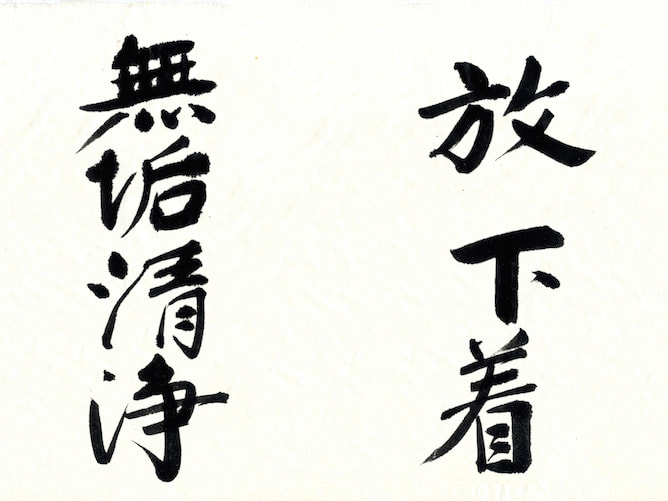 放下着
無垢清浄